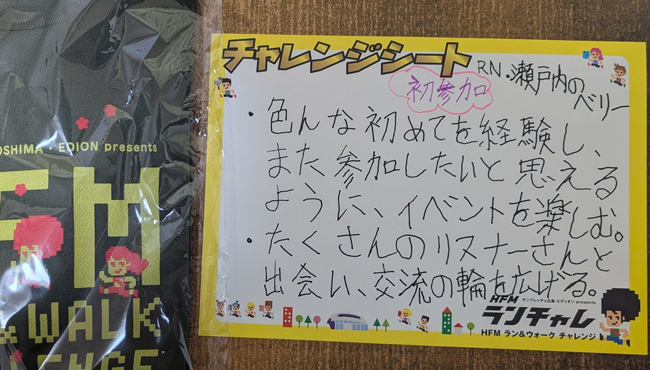 OSHIMA・EDION presents
FM
WALK
チャレンジシート
RN.瀬戸内の
ベリー
初参加
・色んな初めてを経験し、
また参加したいと思える
ように、イベントを楽しむ。
・たくさんのリスナーさんと
出会い、交流の輪を広げる。
HFM サンフレッチェ広島・エディオン presents
ランチャレ
HFM ラン&ウォーク チャレンジ